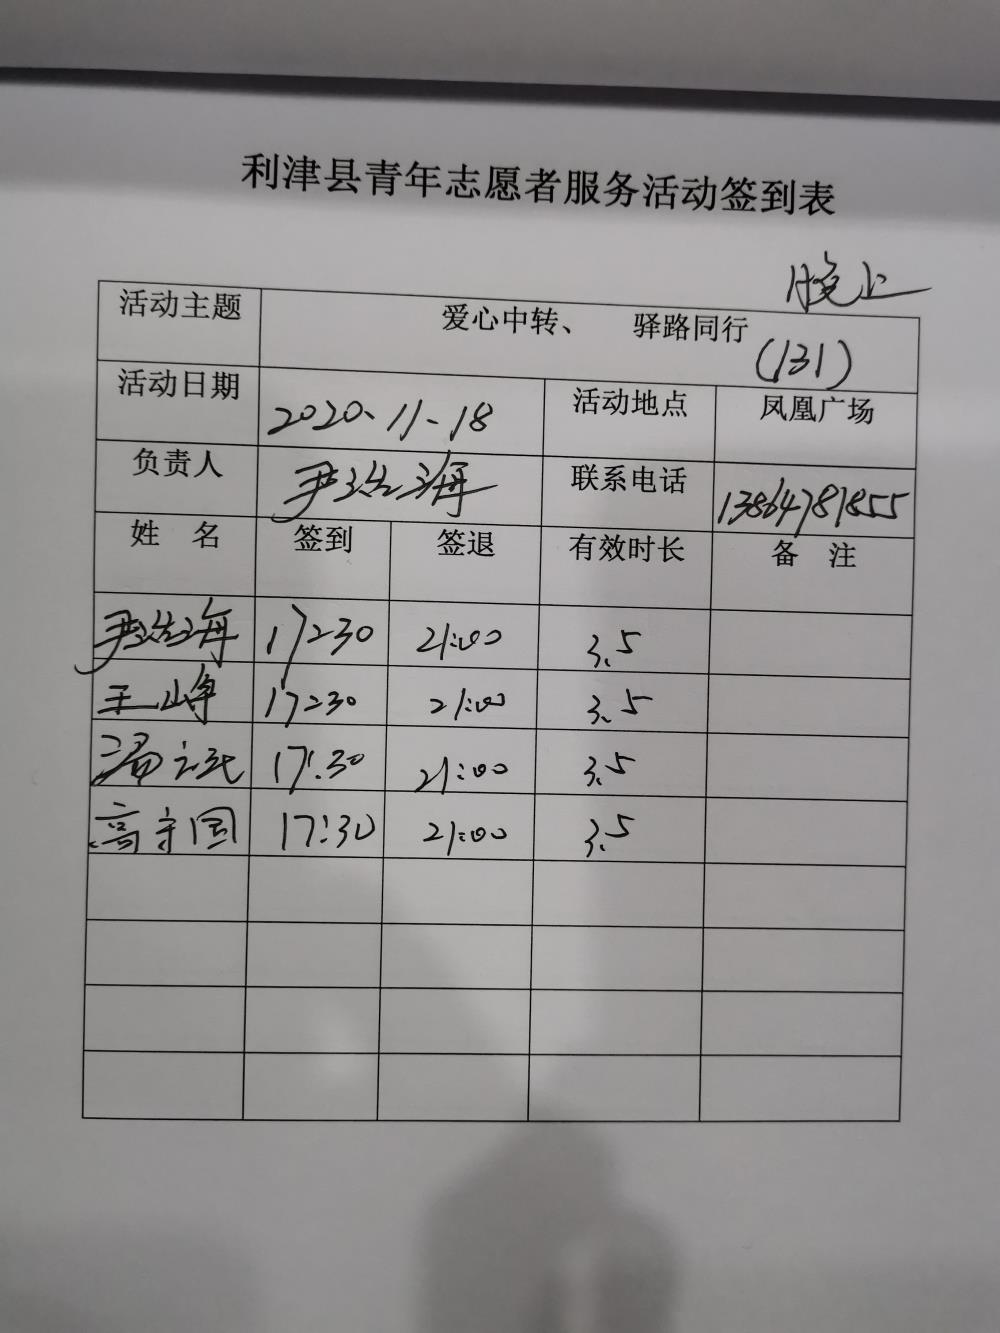 利津县青年志愿者服务活动签到表
晚上
活动主题 爱心中转、 驿路同行
(131)
活动日期 2020.11-18 活动地点 凤凰广场
负责人 尹浩海 联系电话 13864781855
姓 名 签到 签退 有效时长 备 注
尹浩海 17:30 21:00 3.5
王峥 17:30 21:00 3.5
汤 17:30 21:00 3.5
高守国 17:30 21:00 3.5